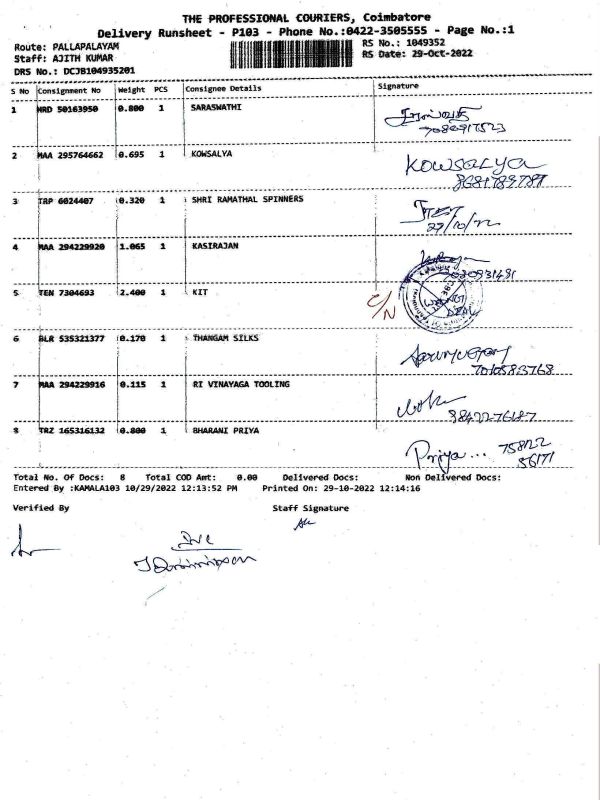 THE PROFESSIONAL COURIERS, Coimbatore
Delivery Runsheet - P103 - Phone No.:0422-3505555 - Page No.:1
Route: PALLAPALAYAM RS No.: 1049352
Staff: AJITH KUMAR RS Date: 29-Oct-2022
DRS No.: DCJB104935201
S No Consignment No Weight PCS Consignee Details Signature
1 NRD 50163950 0.800 1 SARASWATHI
2 MAA 295764662 0.695 1 KOWSALYA KOWSALYA
3 TRP 6024407 0.320 1 SHRI RAMATHAL SPINNERS
27/10/22
4 MAA 294229920 1.065 1 KASIRAJAN
5 TEN 7304693 2.400 1 KIT C/N
6 BLR 535321377 0.170 1 THANGAM SILKS
7010583768
7 MAA 294229916 0.115 1 RI VINAYAGA TOOLING
98422-76187
8 TRZ 165316132 0.800 1 BHARANI PRIYA
Priya... 75822
56171
Total No. Of Docs: 8 Total COD Amt: 0.00 Delivered Docs: Non Delivered Docs:
Entered By :KAMALA103 10/29/2022 12:13:52 PM Printed On: 29-10-2022 12:14:16
Verified By Staff Signature